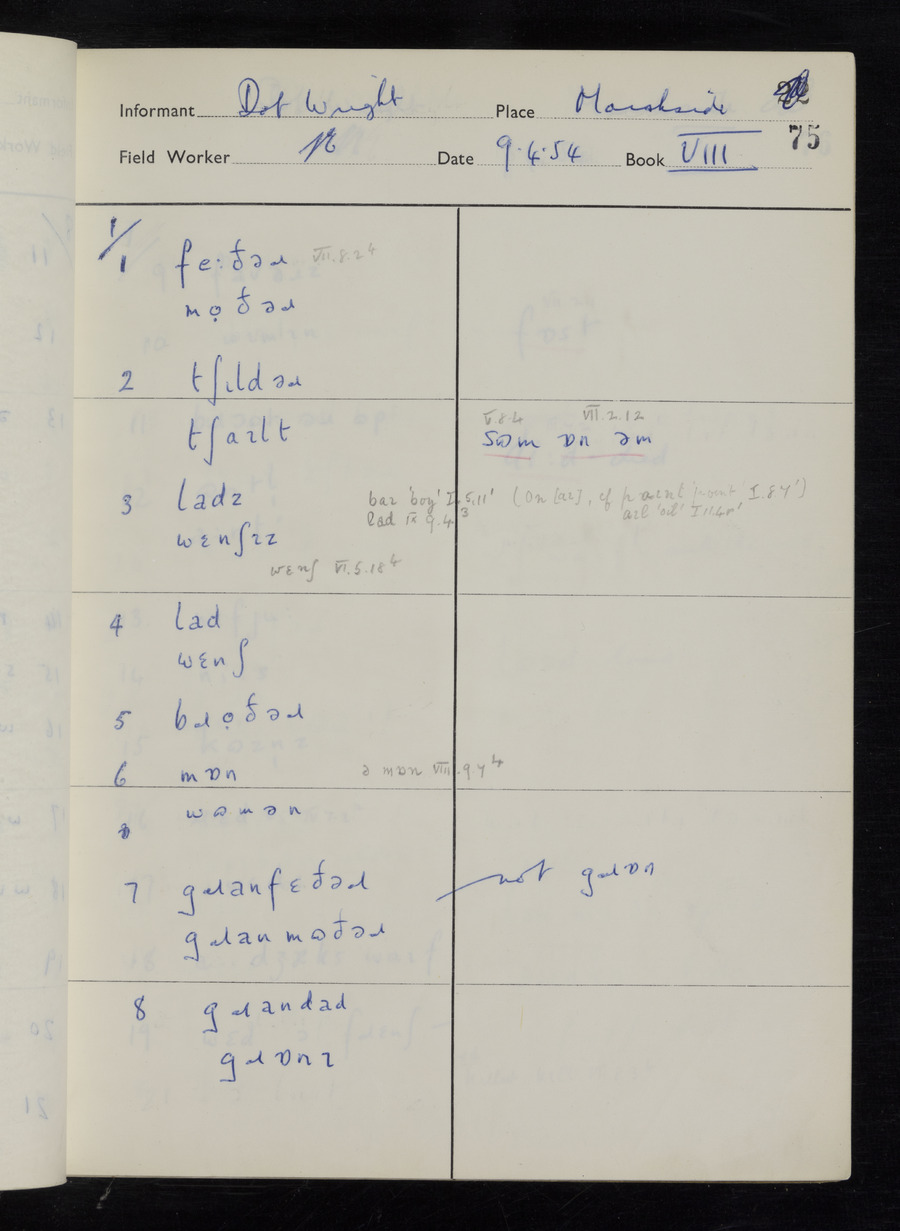 Informant Dot Wright Place Marshside
75
Field Worker Date 9.4.54 Book VIII
1/1 fe:ðəɹ VII.8.2⁴
mo̞ðəɹ
2 tʃɪldəɹ
tʃaɪlt
V 8 4 VII.2.12
sɷm ɒn əm
3 ladz
baɪ 'boy' I.5.11'
lad IX 9.4³
wɛnʃɪz
wɛnʃ VI.5.18⁴
4 lad
wɛnʃ
5 bɹo̞ðəɹ
6 mɒn ə mɒn VIII.9.4⁴
wɷmən
7 gɹanfɛðəɹ not gɹɒn
gɹanmɷðəɹ
8 gɹandad
gɹɒnɪ